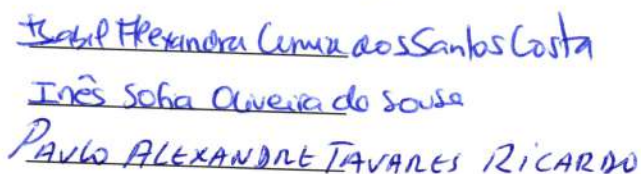 Isabel Alexandra dos Santos Costa
Inês Sofia Oliveira de Sousa
PAULO ALEXANDRE TAVARES RICARDO